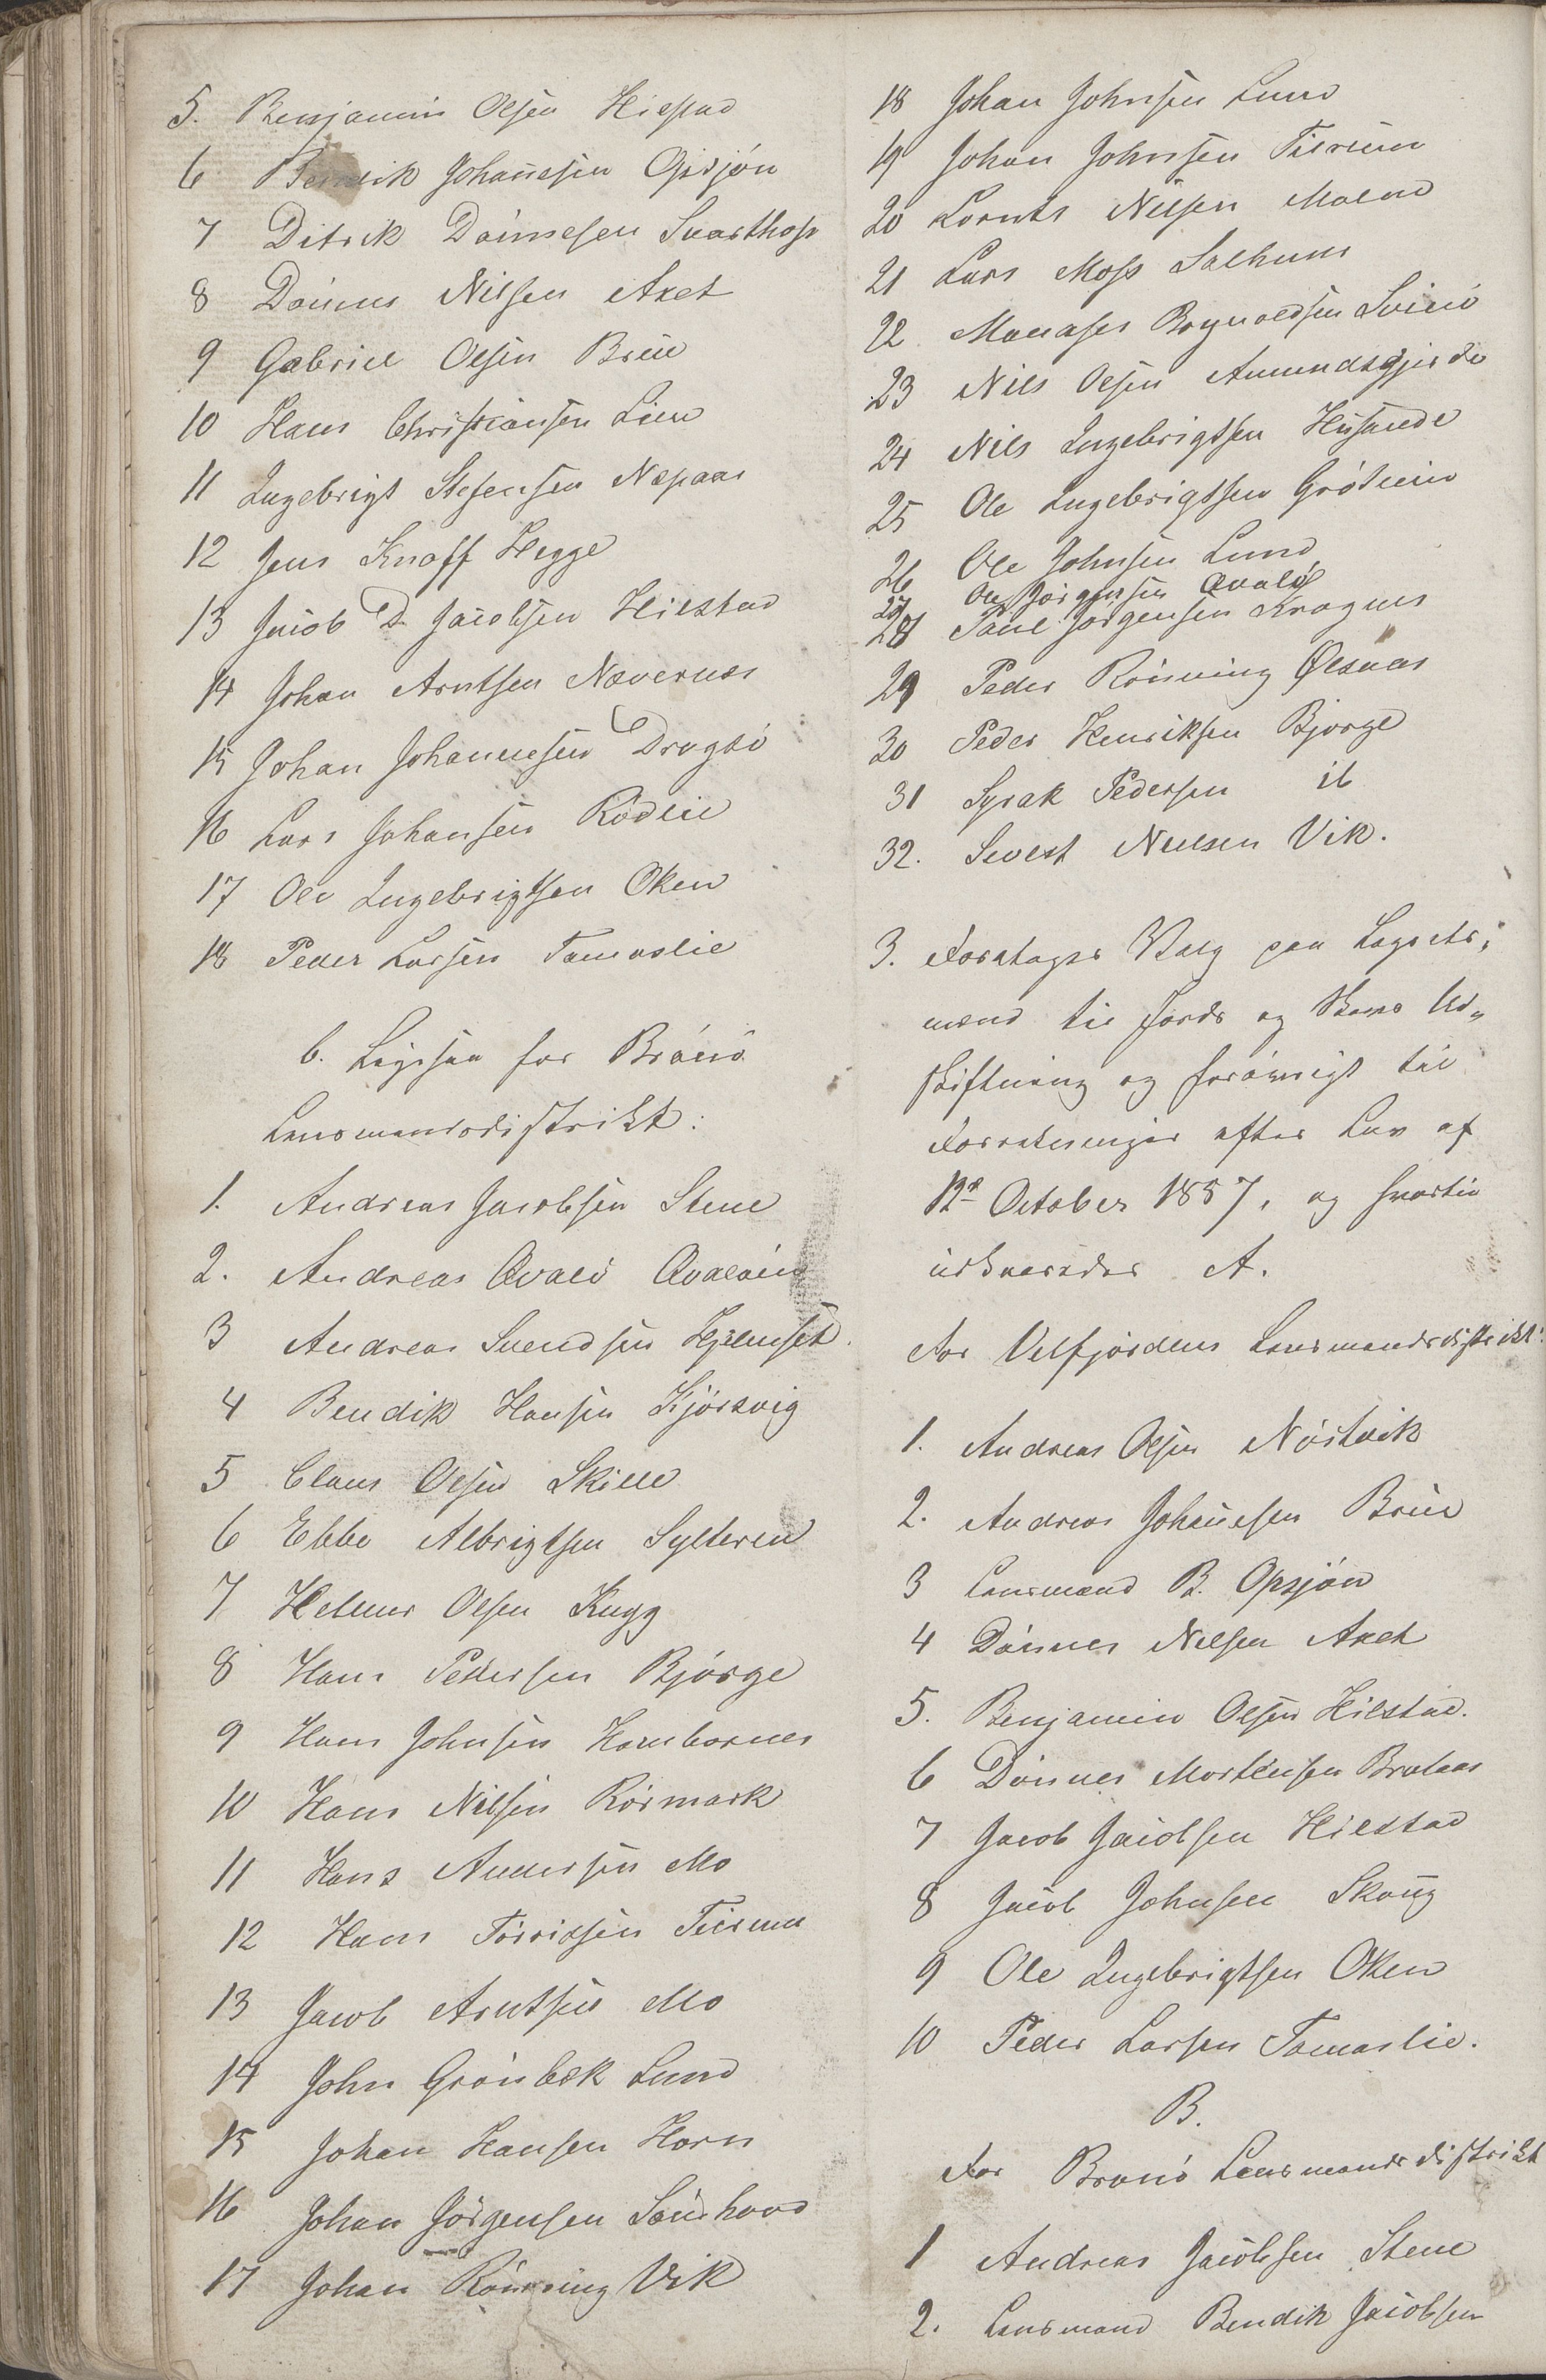 5. Benjamin Olsen Hilstad
6 Bendik Johannesen Opsjøn
7 Ditrik Dönnesen Svarthop
8 Dönnes Nilsen Aket
9 Gabriel Olsen Brue
10 Hans Christiansen Lien
11 Ingebrigt Stefensen Næpaas
12 Jens Knoff Hegge
13 Jacob D. Jacobsen Hilstad
14 Johan Arntsen Nævernes
15 Johan Johannesen Dragsö
16 Lars Johansen Rödlie
17 Ole Ingebrigtsen Oken
18 Peder Larsen Tømaslie
b. Ligesaa for Brönö
Lensmandsdistrikt:
1. Andreas Jacobsen Stene
2. Andreas Qvalö Qvalöen
3 Andreas Svendsen Hjemset
4 Bendik Hansen Kjörsvig
5 Claus Olsen Skille
6 Ebbe Albrigtsen Sylteren
7 Helmer Olsen Rugg
8 Hans Pedersen Bjørge
9 Hans Johnsen Hambornes
10 Hans Nilsen Rörmark
11 Hans Andersen Mo
12 Hans Torrissen Tilrem
13 Jacob Arntsen Mo
14 John Grönbek Lund
15 Johan Hansen Horn
16 Johan Jörgensen Sörhorn
17 Johan Rönning Vik
18 Johan Johnsen Lund
19 Johan Johnsen Tilrem
20 Lornts Nilsen Moland
21 Lars Moss Salhuus
22 Manases Rognaldsen
23 Nils Olsen Amundsgjerde
24 Nils Ingebrigtsen
25 Ole Ingebrigtsen Gröteim
26 Ole Johnsen Lund
27 Ole Jörgensen Qvalö
28 Paul Jörgensen Kragnes
29 Peder Rönning Ølsnes
30 Peder Henriksen Bjørge
31 Syrak Pedersen ib
32. Sivert Nielsen Vik.
3. Foretoges Valg paa Lagrets,
mænd til Jords og Skovs Ud„
skiftning og forøvrigt til
Forretninger efter Lov af
12te October 1857, og hertil
udkaaredes A.
For Velfjordens Lensmandsdistrikt:
1. Andreas Olsen Nöstvik
2. Andreas Johannesen Brue
3 Lensmand B. Opsjön
4 Dönnes Nilsen Aket
5. Benjamin Olsen Hilstad.
6 Dönnes Mortensen Brataas
7 Jacob Jacobsen Hilstad
8 Jacob Johnsen Skoug
9 Ole Ingebrigtsen Oken
10 Peder Larsen Tomaslie.
B.
For Brönö Lensmandsdistrikt
1 Andreas Jacobsen Stene
2. Lensmand Bendik Jacobsen